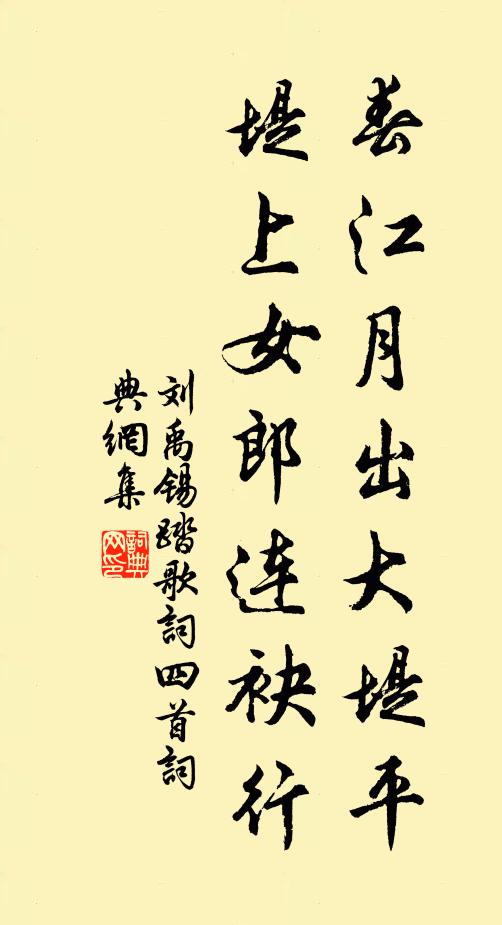 春江月出大堤平
堤上女郎連袂行
刘禹锡踏歌詞四首詞
典網集
詞典
网印